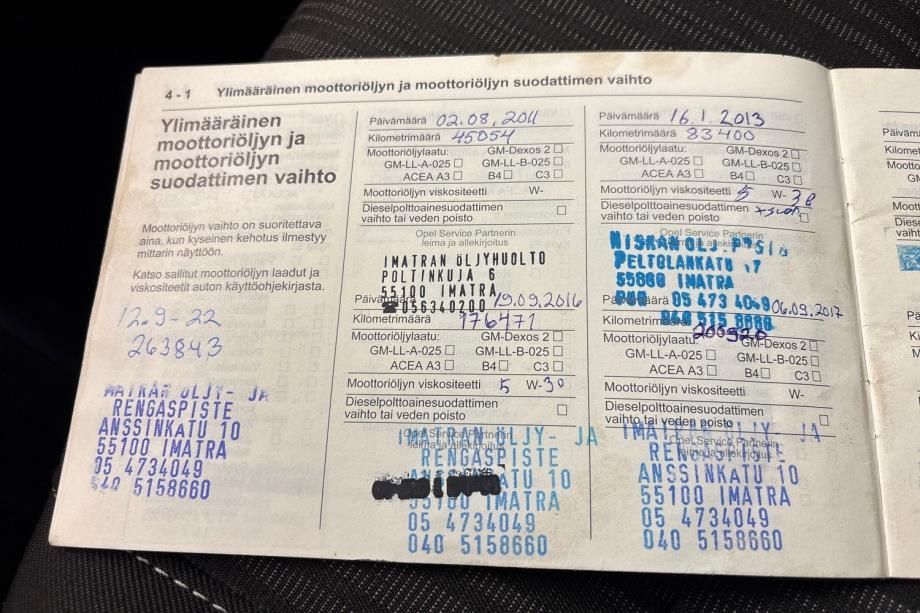 4 - 1 Ylimääräinen moottoriöljyn ja moottoriöljyn suodattimen vaihto
Ylimääräinen
moottoriöljyn ja
moottoriöljyn
suodattimen vaihto
Moottoriöljyn vaihto on suoritettava
aina, kun kyseinen kehotus ilmestyy
mittarin näyttöön.
Katso sallitut moottoriöljyn laadut ja
viskositeetit auton käyttöohjekirjasta.
12.9-22
263843
IMATRAN ÖLJY- JA
RENGASPISTE
ANSSINKATU 10
55100 IMATRA
05 4734049
040 5158660
Päivämäärä 02.08.2011
Kilometrimäärä 45054
Moottoriöljylaatu: GM-Dexos 2
GM-LL-A-025 GM-LL-B-025
ACEA A3 B4 C3
Moottoriöljyn viskositeetti W-
Dieselpolttoainesuodattimen
vaihto tai veden poisto
Opel Service Partnerin
leima ja allekirjoitus
IMATRAN ÖLJYHUOLTO
POLTINKUJA 6
55100 IMATRA
☎056340200
Päivämäärä 19.09.2016
Kilometrimäärä 176471
Moottoriöljylaatu: GM-Dexos 2
GM-LL-A-025 GM-LL-B-025
ACEA A3 B4 C3
Moottoriöljyn viskositeetti 5 W-30
Dieselpolttoainesuodattimen
vaihto tai veden poisto
Opel Service Partnerin
leima ja allekirjoitus
IMATRAN ÖLJY- JA
RENGASPISTE
ANSSINKATU 10
55100 IMATRA
05 4734049
040 5158660
Päivämäärä 16.1.2013
Kilometrimäärä 83400
Moottoriöljylaatu: GM-Dexos 2
GM-LL-A-025 GM-LL-B-025
ACEA A3 B4 C3
Moottoriöljyn viskositeetti 5 W-30
Dieselpolttoainesuodattimen
vaihto tai veden poisto
Opel Service Partnerin
leima ja allekirjoitus
PELTOLANKATU
55800 IMATRA
05 473 4049
Päivämäärä 06.09.2017
Kilometrimäärä
Moottoriöljylaatu: GM-Dexos 2
GM-LL-A-025 GM-LL-B-025
ACEA A3 B4 C3
Moottoriöljyn viskositeetti W-
Dieselpolttoainesuodattimen
vaihto tai veden poisto
Opel Service Partnerin
leima ja allekirjoitus
IMATRAN ÖLJY- JA
RENGASPISTE
ANSSINKATU 10
55100 IMATRA
05 4734049
040 5158660